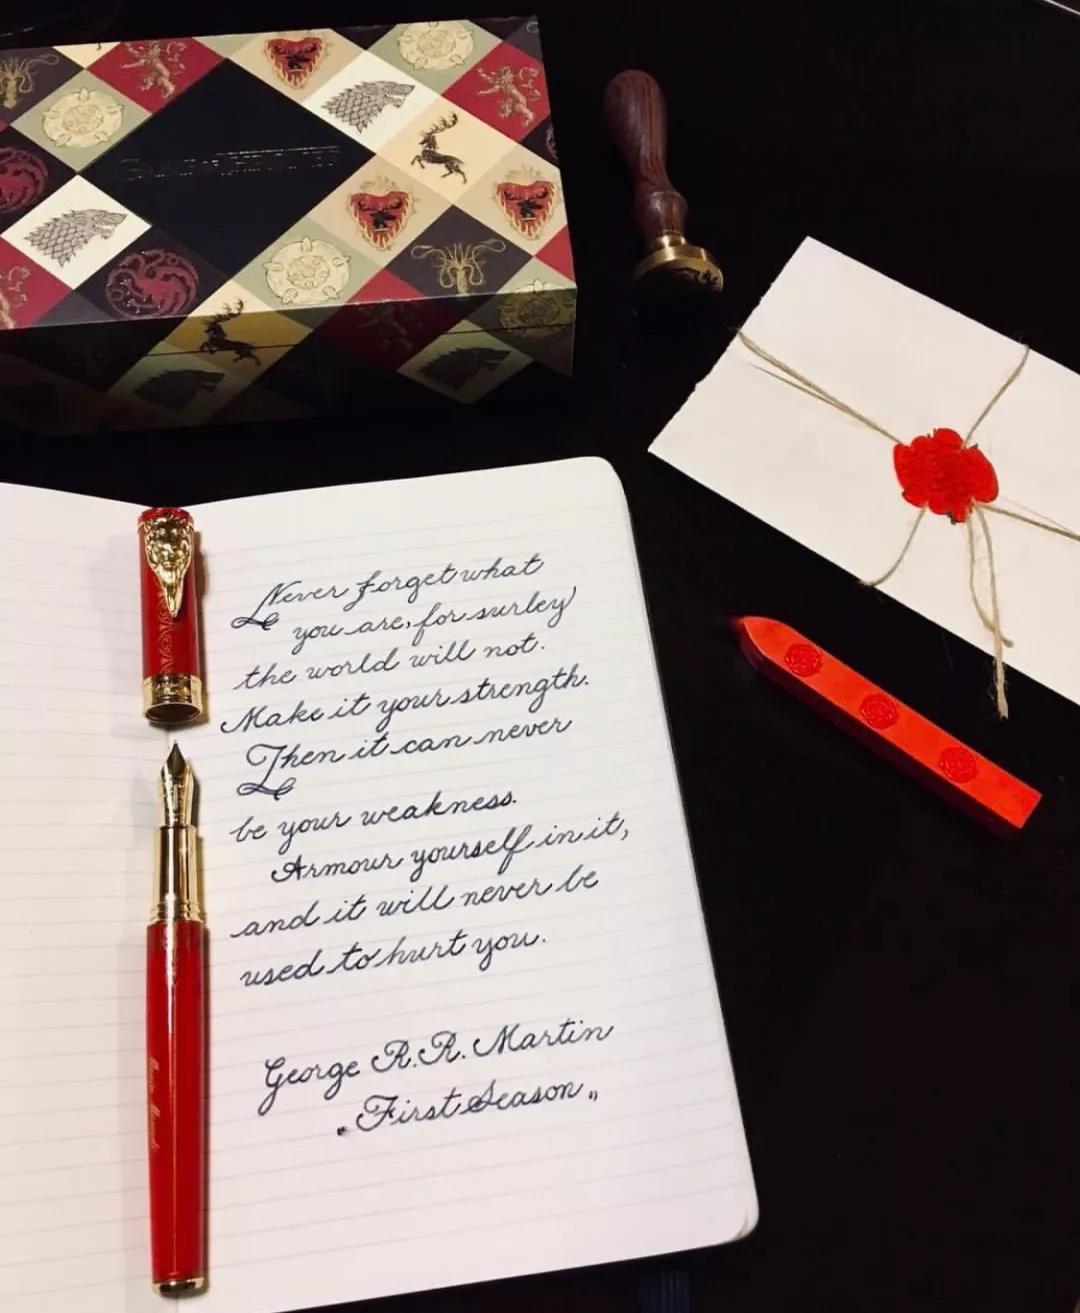 Never forget what
you are, for surley
the world will not.
Make it your strength.
Then it can never
be your weakness.
Armour yourself in it,
and it will never be
used to hurt you.
George R.R. Martin
„First Season„